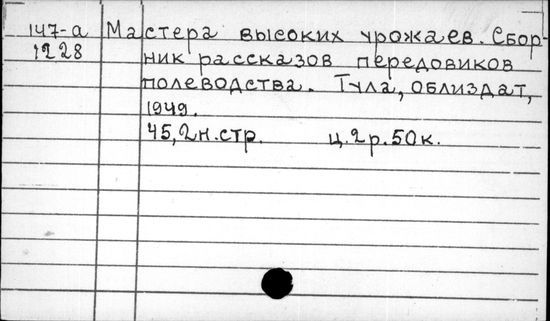 147-а Мастера высоких урожаев. Сбор-
1228 ник рассказов передовиков
полеводства. Тула, облиздат,
1949.
45, 2н.стр. ц. 2р. 50к.